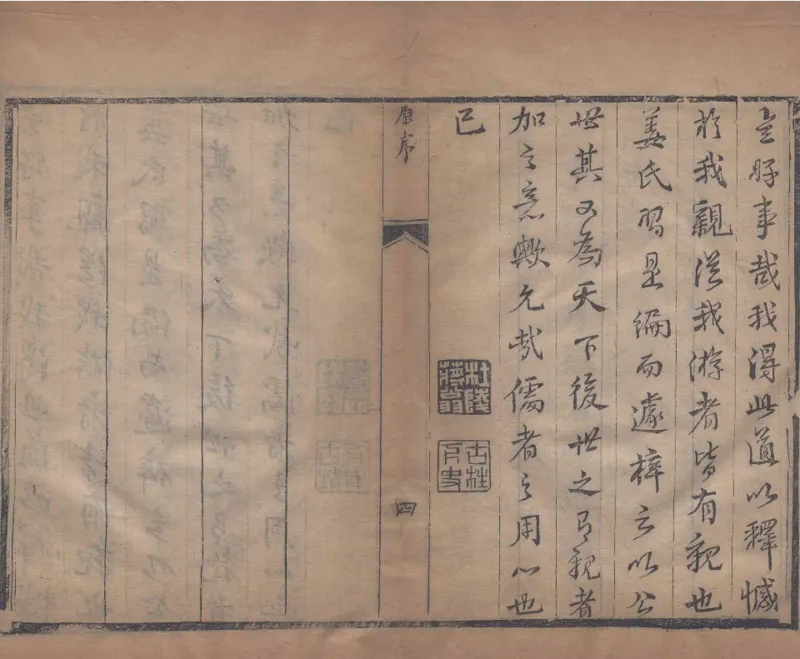 言好事哉我得此道以釋憾
於我親從我游者皆有親也
姜氏習是編而遽梓之以公
世其又為天下後世之有親者
加之意歟允哉儒者之用心也
已
杜陵蔣翁
原序
四